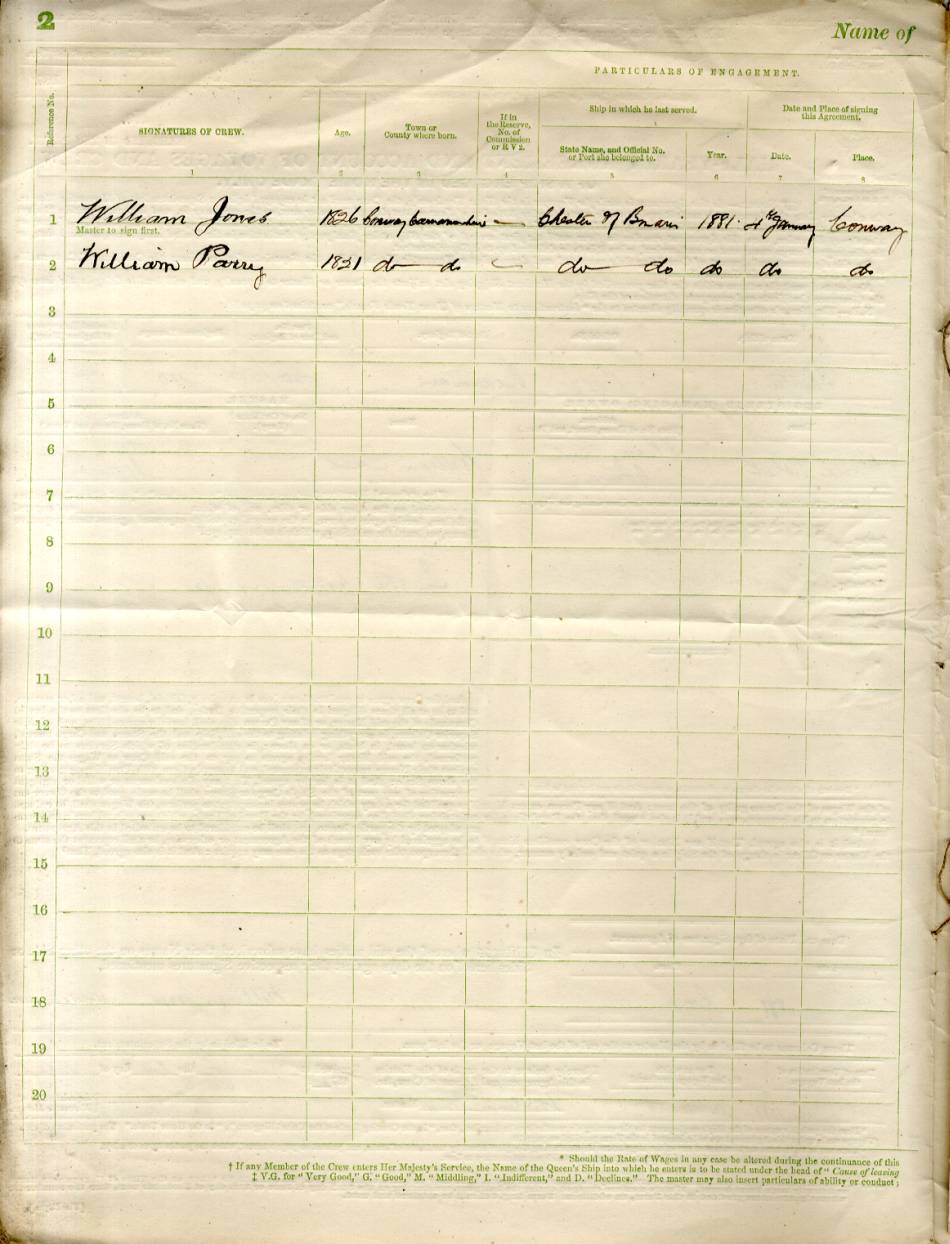 2 Name of
PARTICULARS OF ENGAGEMENT.
Reference No.
SIGNATURES OF CREW.
Age.
Town or
County where born.
If in
the Reserve,
No. of
Commission
or R V 2.
Ship in which he last served.
State Name, and Official No.
or Port she belonged to.
Year.
Date and Place of signing
this Agreement.
Date.
Place.
1 2 3 4 5 6 7 8
1 William Jones 1826 Conway Carnarvonshire — Chester of Bmaris 1881 4th January Conway
Master to sign first.
2 William Parry 1821 do do — do do do do do
3
4
5
6
7
8
9
10
11
12
13
14
15
16
17
18
19
20
* Should the Rate of Wages in any case be altered during the continuance of this
† If any Member of the Crew enters Her Majesty's Service, the Name of the Queen's Ship into which he enters is to be stated under the head of "Cause of leaving
‡ V.G. for "Very Good," G. "Good," M. "Middling," I. "Indifferent," and D. "Declines." The master may also insert particulars of ability or conduct;